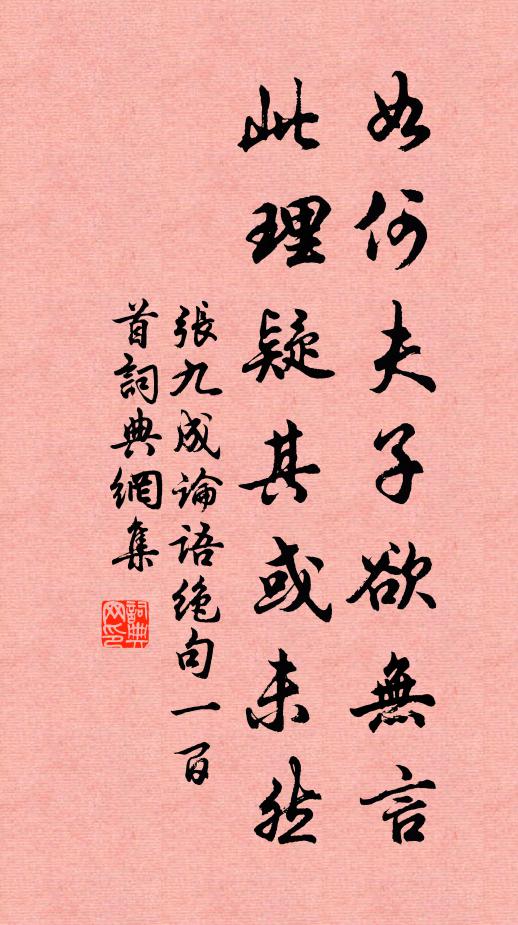 如何夫子欲無言
此理疑其或未然
張九成論語絶句一百
首詞典網集
詞典網印